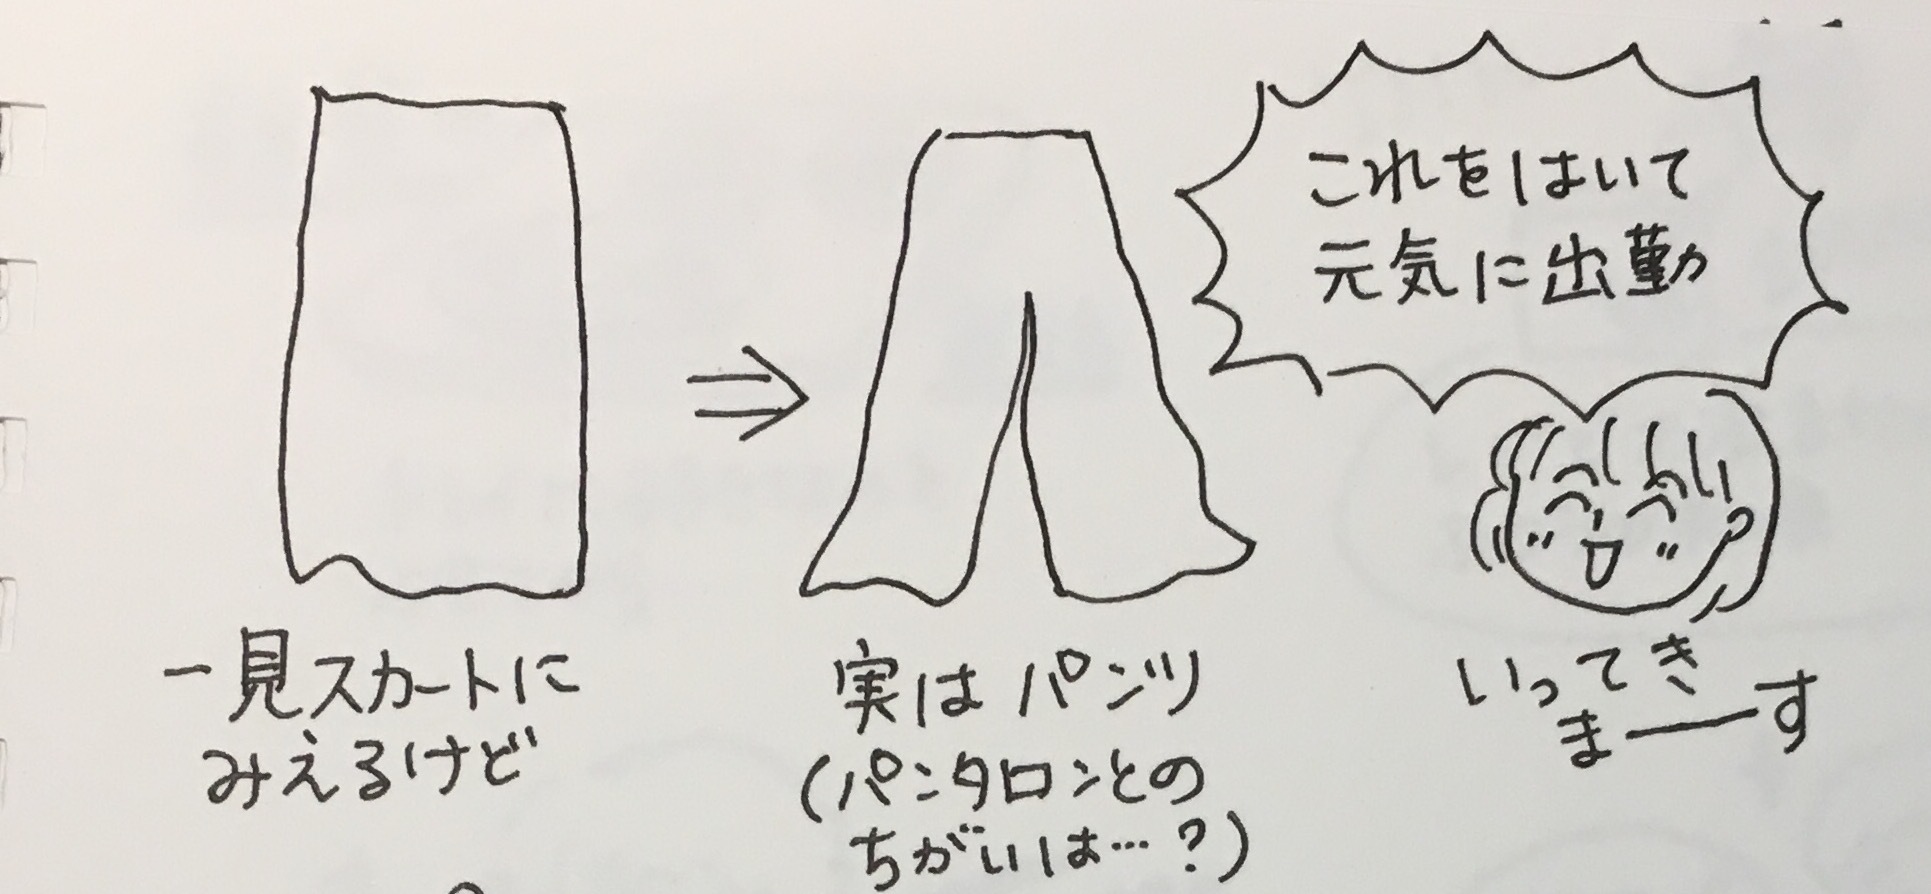 一見スカートに
みえるけど
実はパンツ
(パンタロンとの
ちがいは…?)
これをはいて
元気に出勤
いってき
まーす